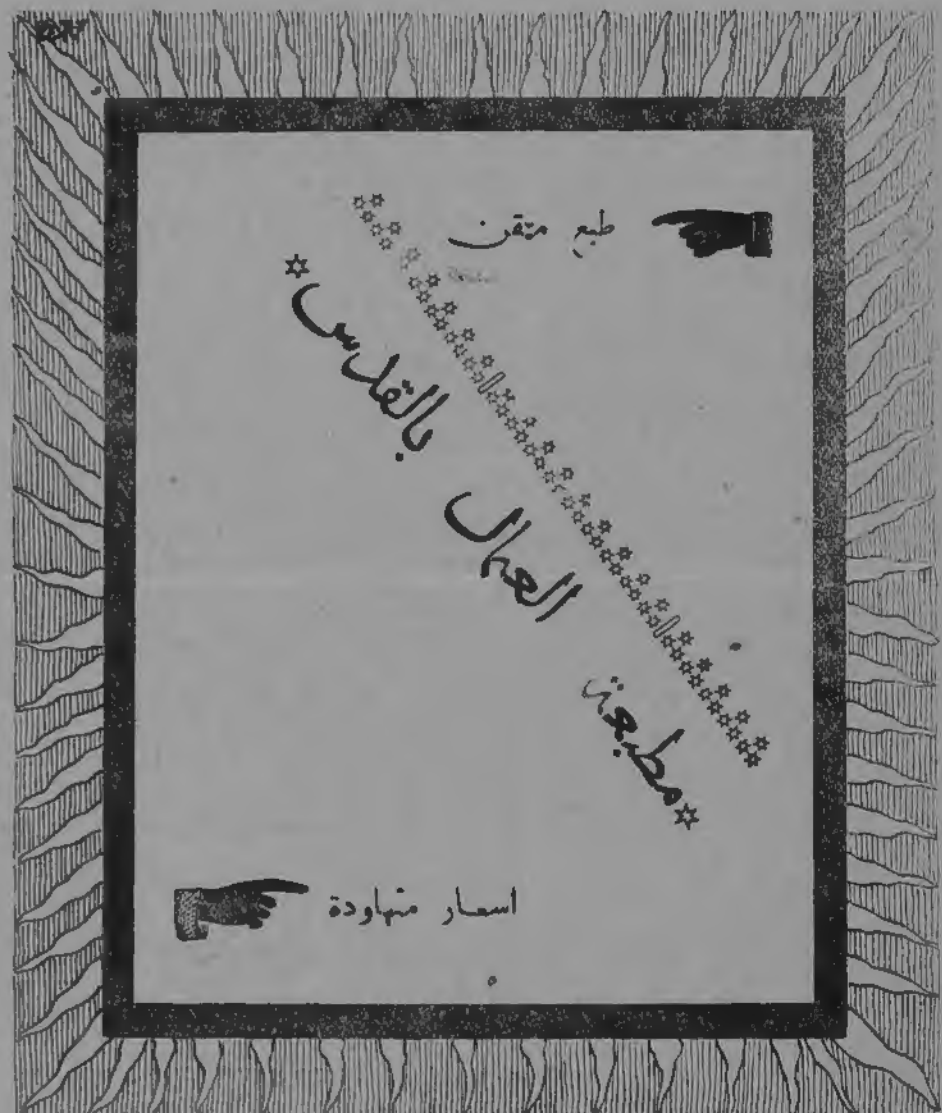 طبع متقن
مطبعة العمال بالقدس
اسعار متهاودة